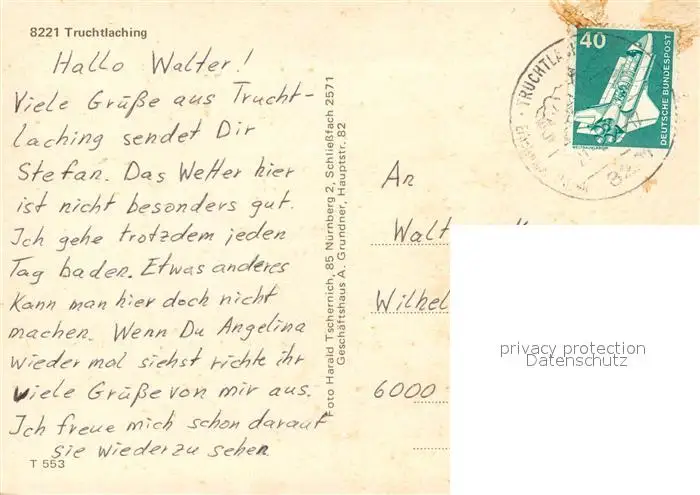 8221 Truchtlaching
Hallo Walter!
Viele Grüße aus Trucht-
laching sendet Dir
Stefan. Das Wetter hier
ist nicht besonders gut.
Ich gehe trotzdem jeden
Tag baden. Etwas anderes
kann man hier doch nicht
machen. Wenn Du Angelina
wieder mal siehst richte ihr
viele Grüße von mir aus.
Ich freue mich schon darauf
sie wiederzusehen
T 553
Foto Harald Tschernich, 85 Nürnberg 2, Schließfach 2571
Geschäftshaus A. Grundner, Hauptstr. 82
40
DEUTSCHE BUNDESPOST
An
Walt
Wilhel
6000
privacy protection
Datenschutz